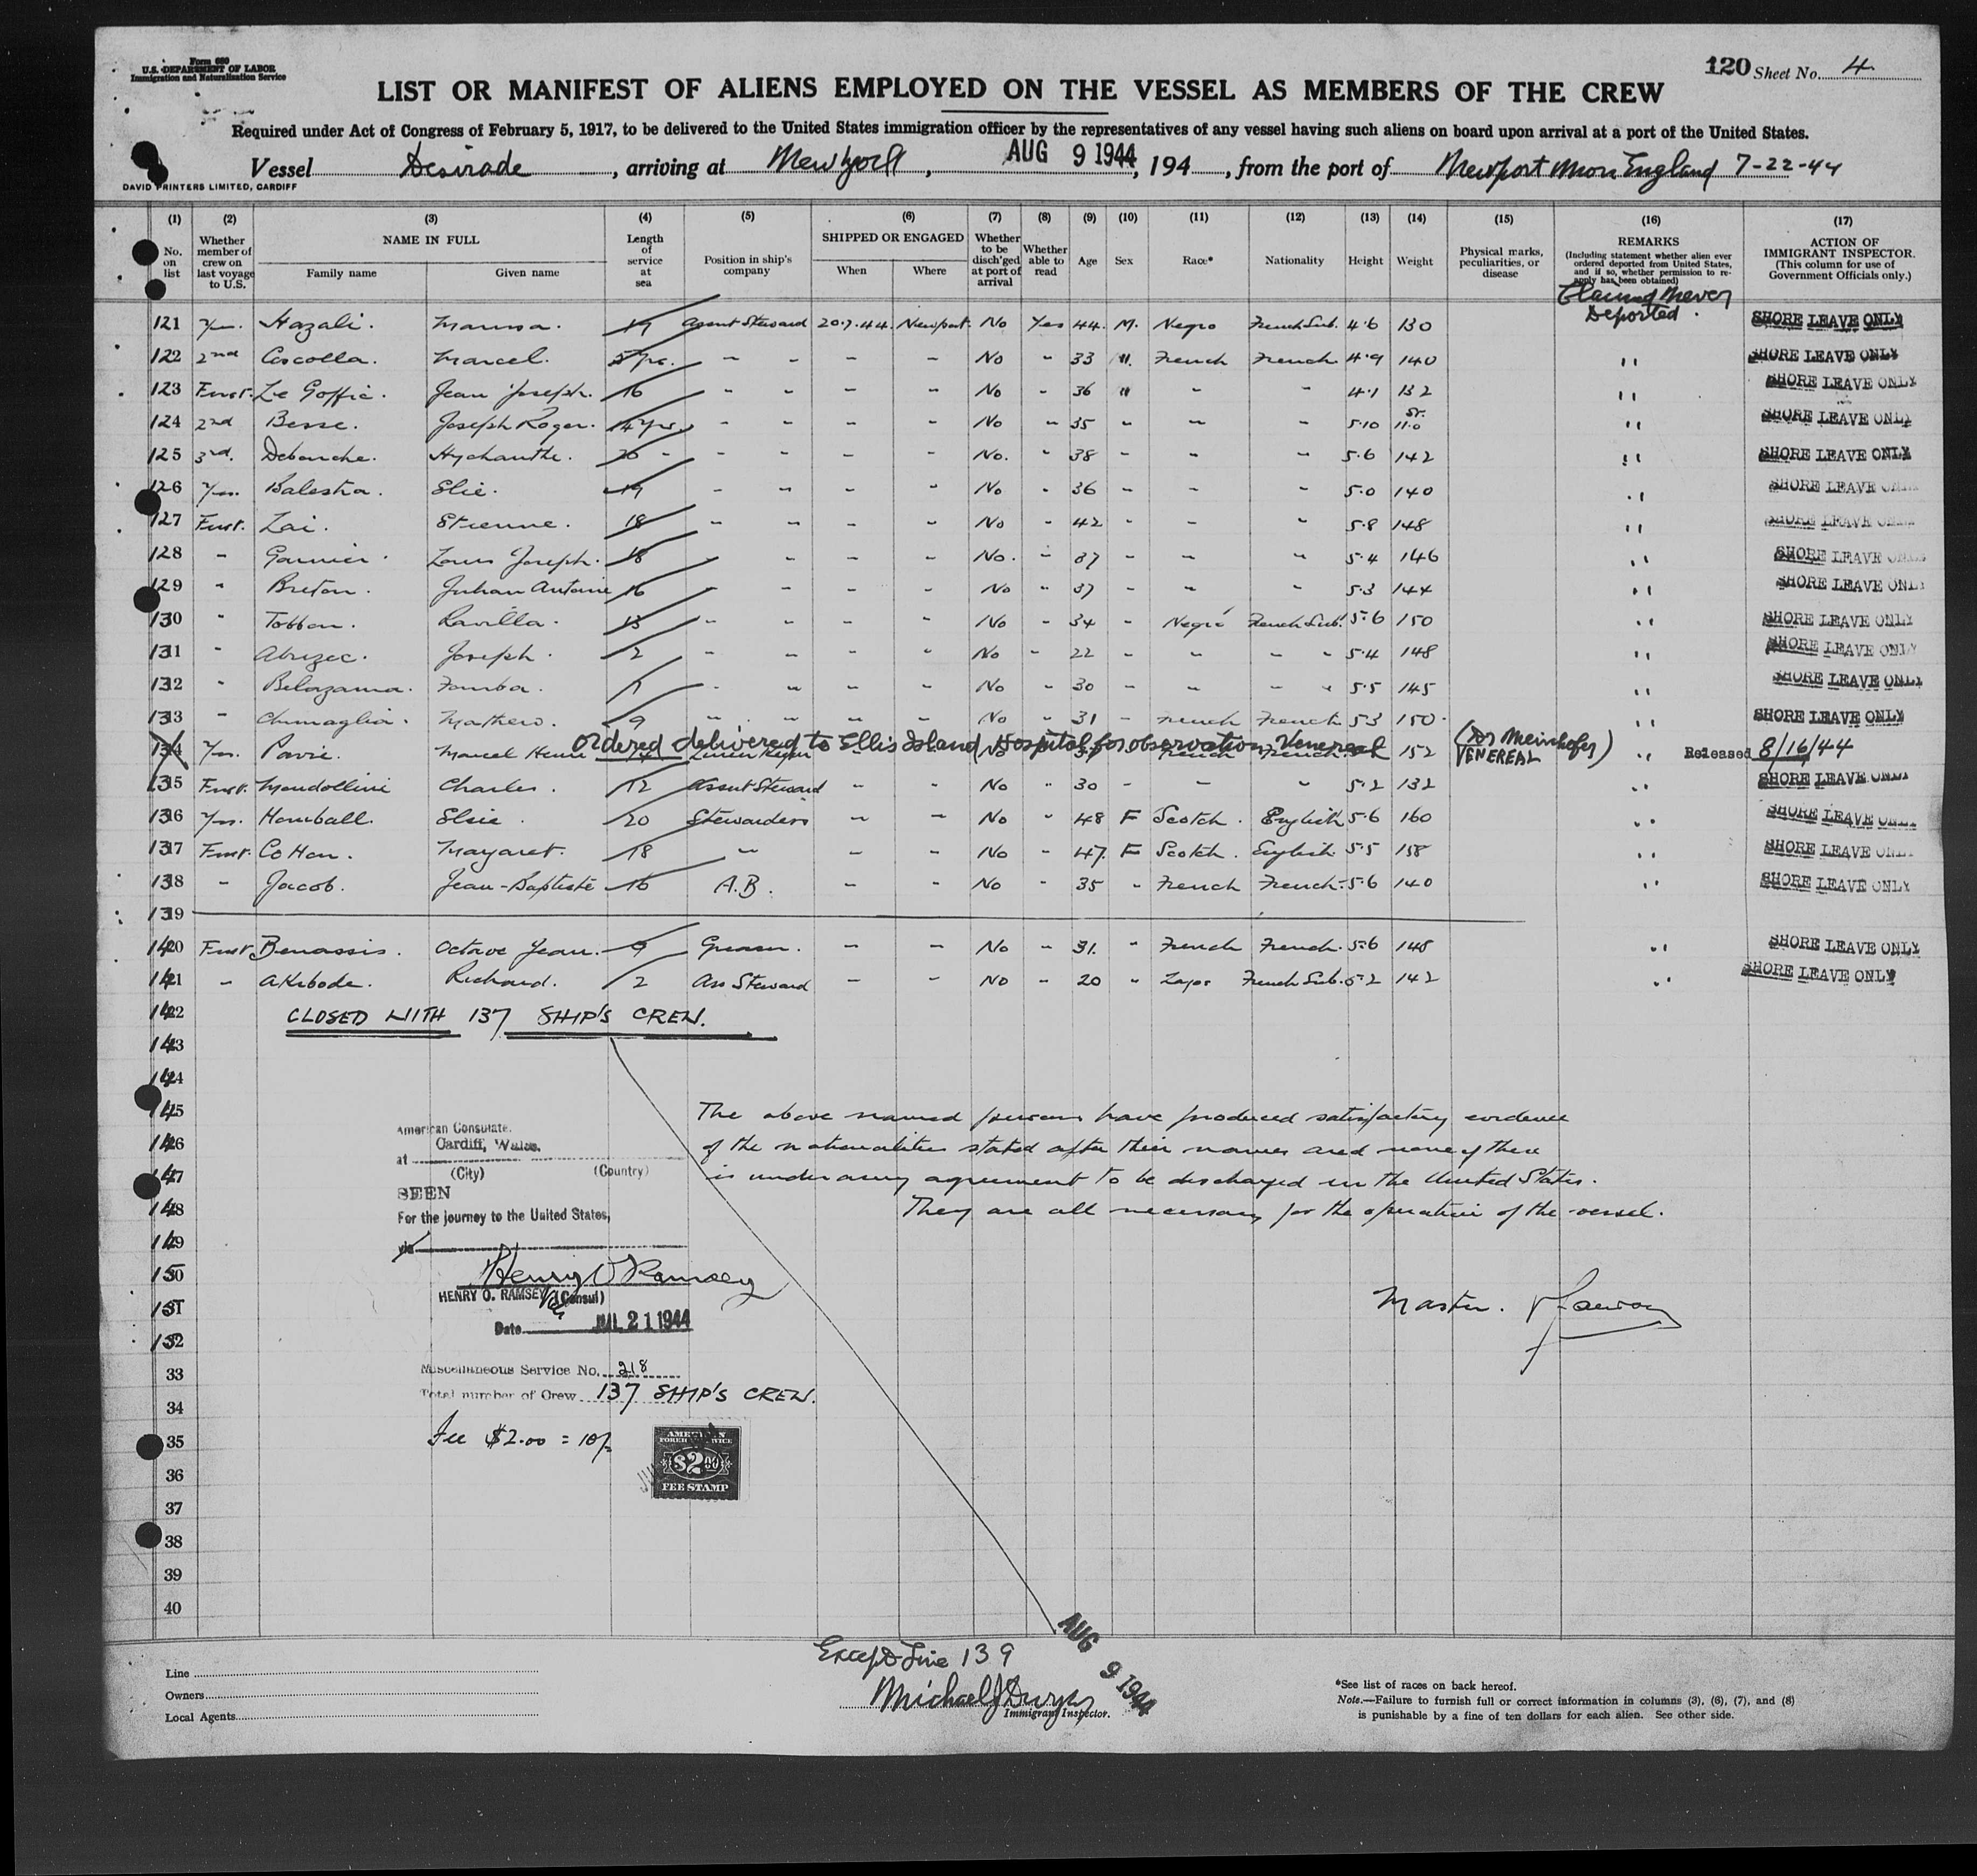 Form 680
U.S. DEPARTMENT OF LABOR
Immigration and Naturalization Service
120 Sheet No. 4
LIST OR MANIFEST OF ALIENS EMPLOYED ON THE VESSEL AS MEMBERS OF THE CREW
Required under Act of Congress of February 5, 1917, to be delivered to the United States immigration officer by the representatives of any vessel having such aliens on board upon arrival at a port of the United States.
Vessel Desirade, arriving at New York, AUG 9 1944, 194, from the port of Newport Mon England 7-22-44
DAVID PRINTERS LIMITED, CARDIFF
(1) (2) (3) (4) (5) (6) (7) (8) (9) (10) (11) (12) (13) (14) (15) (16) (17)
No. on list
Whether member of crew on last voyage to U.S.
NAME IN FULL
Family name
Given name
Length of service at sea
Position in ship's company
SHIPPED OR ENGAGED
When
Where
Whether to be disch'ged at port of arrival
Whether able to read
Age
Sex
Race*
Nationality
Height
Weight
Physical marks, peculiarities, or disease
REMARKS
(Including statement whether alien ever ordered deported from United States, and if so, whether permission to reapply has been obtained)
ACTION OF IMMIGRANT INSPECTOR
(This column for use of Government Officials only.)
Claims Never
Deported.
121 Yes. Hazali. 19 Assnt Steward 20.7.44. Newport. No Yes 44. M. Negro French Sub. 4.6 130 SHORE LEAVE ONLY
122 2nd Coscolla. Marcel. 5 yrs. - - - - No " 33 ". French French 4.9 140 " SHORE LEAVE ONLY
123 First. Le Goffic. Jean Joseph. 16 - - - - No - 36 " - " 4.1 132 " SHORE LEAVE ONLY
124 2nd Besse. Joseph Roger. 14 yrs - - - - No " 35 - - " 5.10 11.0 " SHORE LEAVE ONLY
125 3rd. Debouche. Hychanthe. 20 - - - - No. " 38 - - " 5.6 142 " SHORE LEAVE ONLY
126 Yes. Balestra. Elie. 19 - - - - No " 36 - - " 5.0 140 " SHORE LEAVE ONLY
127 First. Lai. Etienne. 18 - - - - No " 42 - - " 5.8 148 " SHORE LEAVE ONLY
128 - Garnier. Louis Joseph. 18 - - - - No. " 37 - - " 5.4 146 " SHORE LEAVE ONLY
129 " Breton. Julian Antoine 16 - - - - No " 37 - - " 5.3 144 " SHORE LEAVE ONLY
130 " Tobbon. Ravilla. 13 - - - - No " 34 - Negro French Sub. 5.6 150 " SHORE LEAVE ONLY
131 " Abrizec. Joseph. 2 - - - - No " 22 - " - " 5.4 148 " SHORE LEAVE ONLY
132 " Belazama. Zamba. 1 - - - - No " 30 - " - " 5.5 145 " SHORE LEAVE ONLY
133 " Chimaglia. Mathew. 9 - - - - No " 31 - French French 5.3 150. " SHORE LEAVE ONLY
Ordered delivered to Ellis Island Hospital for observation Venereal (Dr Meinhofer)
134 Yes. Pavie. Marcel Henri French French 152 VENEREAL " Released 8/16/44
135 First. Mondollini Charles. 12 Assnt Steward - - No " 30 - - " 5.2 132 " SHORE LEAVE ONLY
136 Yes. Hornball. Elsie. 20 Stewardess - - No " 48 F Scotch. English 5.6 160 " SHORE LEAVE ONLY
137 First. Cotton. Margaret. 18 " - - No - 47. F Scotch. English 5.5 158 " SHORE LEAVE ONLY
138 - Jacob. Jean-Baptiste 16 A.B. - - No " 35 " French French 5.6 140 " SHORE LEAVE ONLY
139
140 First Benassis. Octave Jean. 9 Greaser. - - No - 31. " French French. 5.6 148 " SHORE LEAVE ONLY
141 - Akibode. Richard. 2 Ass Steward - - No - 20 " Lagos French Sub. 5.2 142 " SHORE LEAVE ONLY
142 CLOSED WITH 137 SHIP'S CREW.
143
144
145
146
147
148
149
150
151
152
33
34
35
36
37
38
39
40
The above named persons have produced satisfactory evidence
of the nationalities stated after their names and none of them
is under any agreement to be discharged in the United States.
They are all necessary for the operation of the vessel.
Master.
American Consulate.
at Cardiff, Wales.
(City) (Country)
SEEN
For the journey to the United States,
via
Henry O Ramsey
HENRY O. RAMSEY (Consul)
Date JUL 21 1944
Miscellaneous Service No. 218
Total number of Crew 137 SHIP'S CREW.
Fee $2.00 = 10/-
AMERICAN
FOREIGN SERVICE
$2.00
FEE STAMP
Except Line 139
AUG 9 1944
Michael J Dwyer
Immigrant Inspector.
Line
Owners
Local Agents
*See list of races on back hereof.
Note.—Failure to furnish full or correct information in columns (3), (6), (7), and (8)
is punishable by a fine of ten dollars for each alien. See other side.